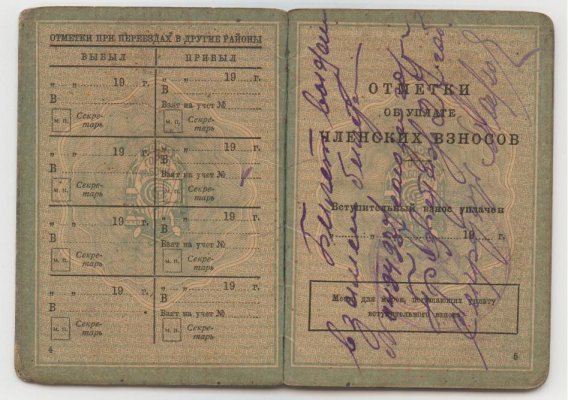 ОТМЕТКИ ПРИ ПЕРЕЕЗДАХ В ДРУГИЕ РАЙОНЫ
ВЫБЫЛ ПРИБЫЛ
„ „ 19 г. „ „ 19 г.
В В
Взят на учет №
М. П. Секретарь М. П. Секретарь
„ „ 19 г. „ „ 19 г.
В В
Взят на учет №
М. П. Секретарь М. П. Секретарь
„ „ 19 г. „ „ 19 г.
В В
Взят на учет №
М. П. Секретарь М. П. Секретарь
„ „ 19 г. „ „ 19 г.
В В
Взят на учет №
М. П. Секретарь М. П. Секретарь
4
ОТМЕТКИ
ОБ УПЛАТЕ
ЧЛЕНСКИХ ВЗНОСОВ
Вступительный взнос уплачен
„ „ 19 г.
Место для марок, погашающих уплату
вступительного взноса
5
Билет выдан
взамен билета